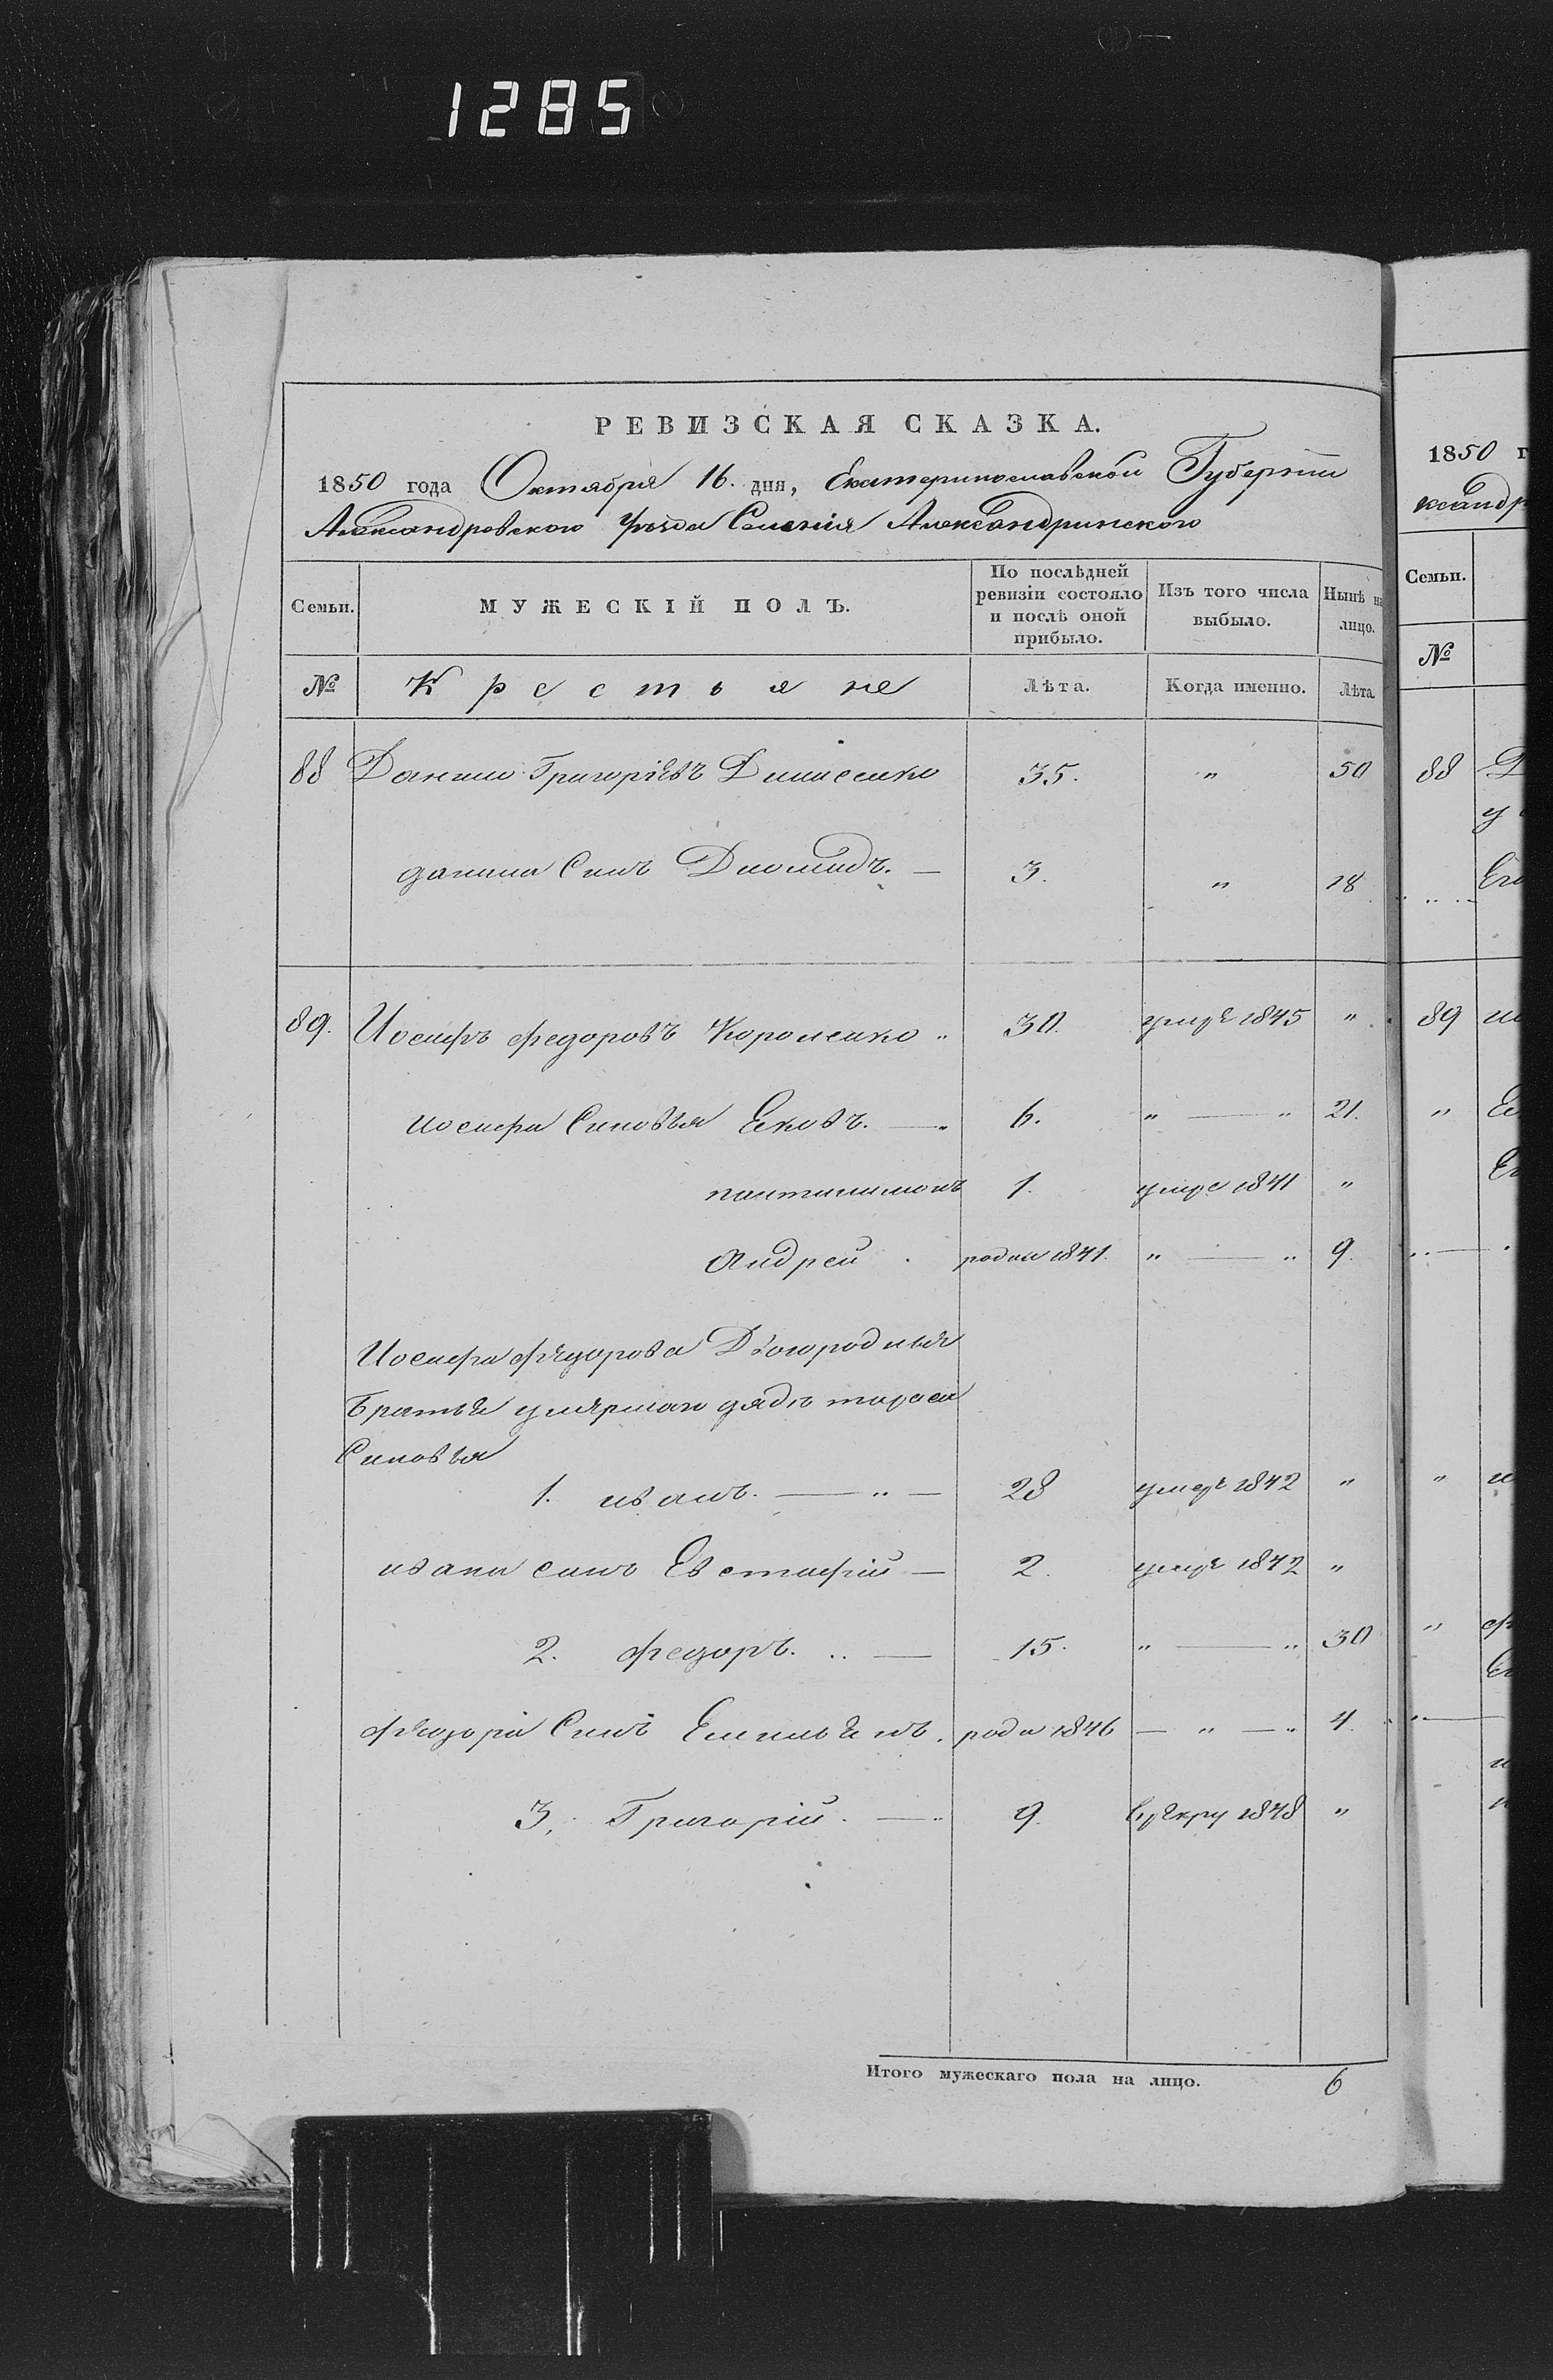 1285
РЕВИЗСКАЯ СКАЗКА.
1850 года Октября 16. дня, Екатеринославской Губерніи
Александровского Уезда Селенія Александринского
Семьи.
МУЖЕСКІЙ ПОЛЪ.
По послѣдней ревизіи состояло и послѣ оной прибыло.
Изъ того числа выбыло.
Нынѣ на лицо.
№ Крестьяне Лѣта. Когда именно. Лѣта.
88 Данило Григоріевъ 35. " 50
данила Синъ Диомидъ. — 3. " 18
89. Иосифъ федоровъ Короленко " 30. умре 1845 "
иосифа Синовья Яковъ. — " 6. " — " 21.
пантилимонъ 1. умре 1841 "
Андрей . родил 1841. " — " 9.
Иосифа фѣдорова Двогородныя
Братья умяршаго дядѣ тараса
Синовья
1. иванъ. — " — 28 умерѣ 1842 "
ивана синъ Евстафій — 2. умре 1842 "
2. федоръ. " — 15. " — " 30
фѣдора Синъ Емильянъ. роди 1846 — " — " 4.
3. Григорій. — " 9. в рекру 1848 "
Итого мужескаго пола на лицо. 6
1850 г
ксандр
Семьи.
№
88
89